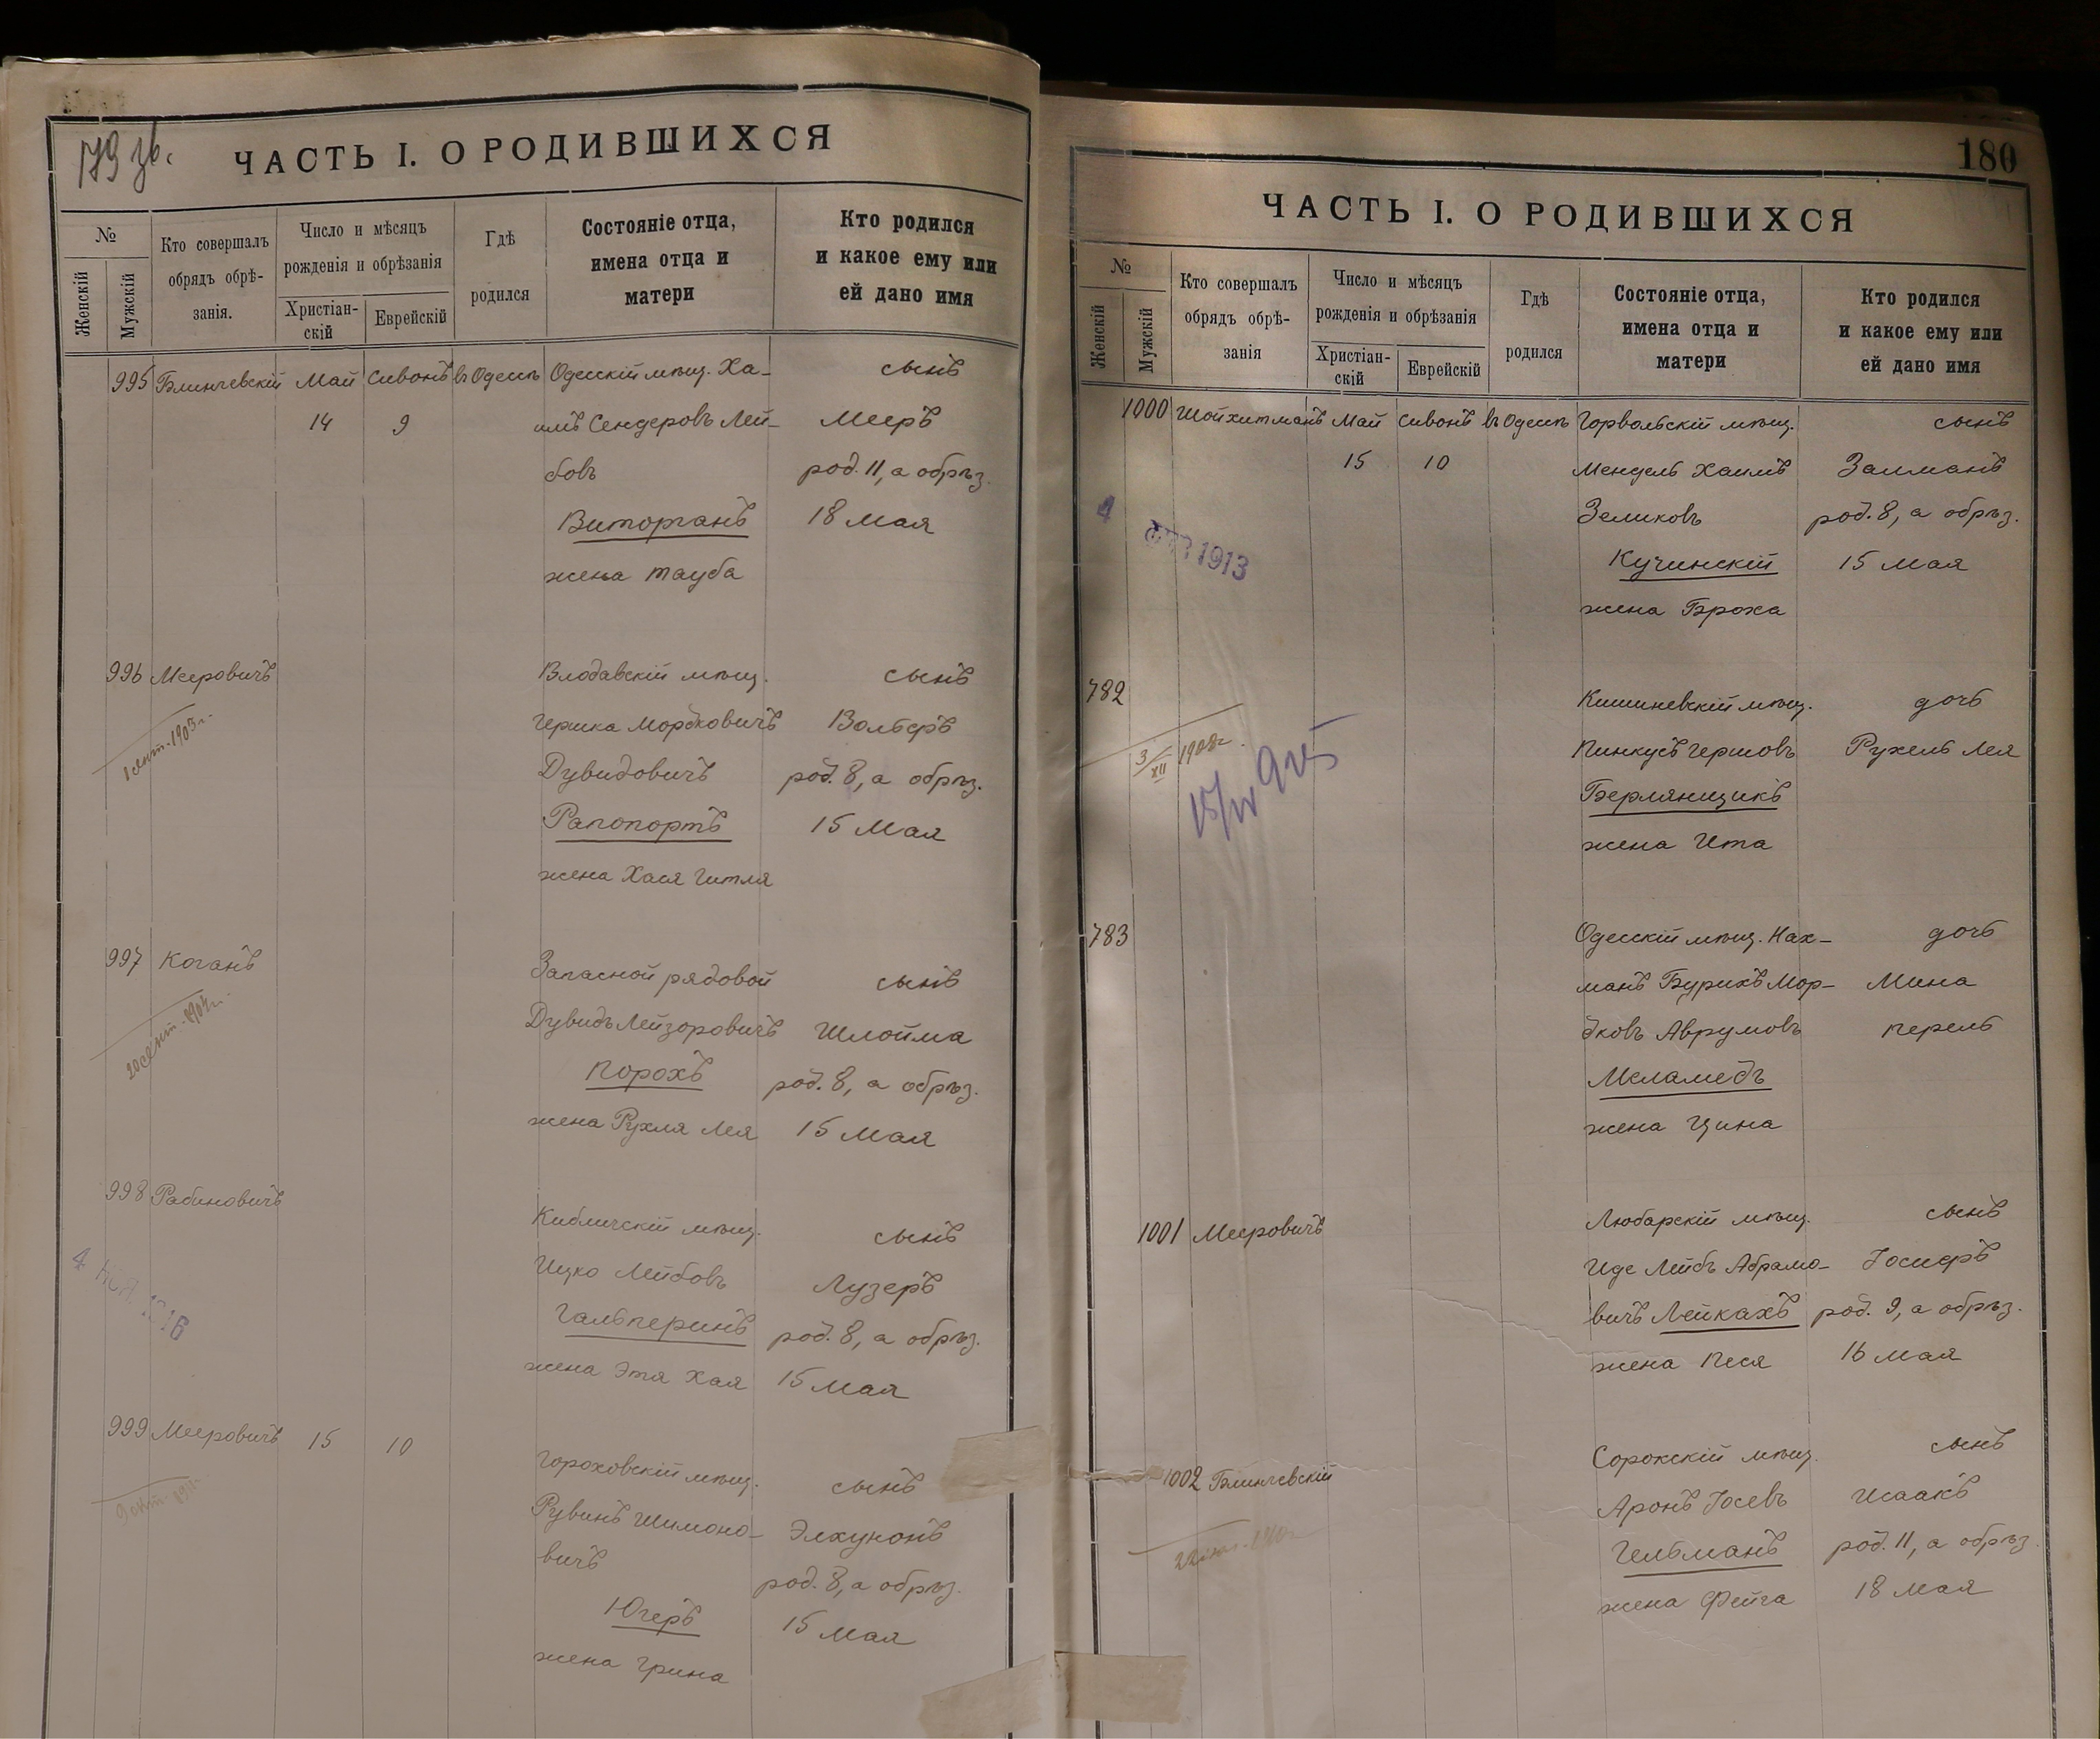 179 зв.
ЧАСТЬ I. О РОДИВШИХСЯ
№
Женскій
Мужскій
Кто совершалъ
обрядъ обрѣ-
занія.
Число и мѣсяцъ
рожденія и обрѣзанія
Христіан-
скій
Еврейскій
Гдѣ
родился
Состояніе отца,
имена отца и
матери
Кто родился
и какое ему или
ей дано имя
995 Блинчевскій Май Сивонъ въ Одессѣ Одесскій мѣщ. Ха- сынъ
14 9 имъ Сендеровъ Лей- Мееръ
бовъ род. 11, а обрѣз.
Виторганъ 18 Мая
жена Тауба
996 Мееровичъ Влодавскій мѣщ. сынъ
Гершка Мордковичъ Вольфъ
1 сент. 1903 г. Дувидовичъ род. 8, а обрѣз.
Рапопортъ 15 Мая
жена Хася Гитля
997 Коганъ Запасной рядовой сынъ
Дувидъ Лейзоровичъ Шлойма
20 сент. Порохъ род. 8, а обрѣз.
жена Рухля Лея 15 Мая
998 Рабиновичъ Кибличскій мѣщ. сынъ
Ицко Лейбовъ Лузеръ
4 1916 Гальперинъ род. 8, а обрѣз.
жена Этя Хая 15 Мая
999 Мееровичъ 15 10 Гороховскій мѣщ. сынъ
Рувинъ Шимоно- Элхунонъ
вичъ род. 8, а обрѣз.
Югеръ 15 Мая
жена Грина
180
ЧАСТЬ I. О РОДИВШИХСЯ
№
Женскій
Мужскій
Кто совершалъ
обрядъ обрѣ-
занія
Число и мѣсяцъ
рожденія и обрѣзанія
Христіан-
скій
Еврейскій
Гдѣ
родился
Состояніе отца,
имена отца и
матери
Кто родился
и какое ему или
ей дано имя
1000 Шойхитманъ Май Сивонъ въ Одессѣ Горвольскій мѣщ. сынъ
15 10 Мендель Хаимъ Залманъ
4 1913 Зеликовъ род. 8, а обрѣз.
Кучинскій 15 Мая
жена Броха
782 Кишиневскій мѣщ. дочь
3/XII 1908 г. Пинкусъ Гершовъ Рухель Лея
Берлянщикъ
жена Ита
783 Одесскій мѣщ. Нах- дочь
манъ Бурихъ Мор- Мина
дковъ Аврумовъ Перель
Меламедъ
жена Цина
1001 Мееровичъ Любарскій мѣщ. сынъ
Иде Лейбъ Абрамо- Іосифъ
вичъ Лейкахъ род. 9, а обрѣз.
жена Песя 16 Мая
1002 Блинчевскій Сорокскій мѣщ. сынъ
Аронъ Іосевъ Исаакъ
Гельманъ род. 11, а обрѣз.
жена Фейга 18 Мая